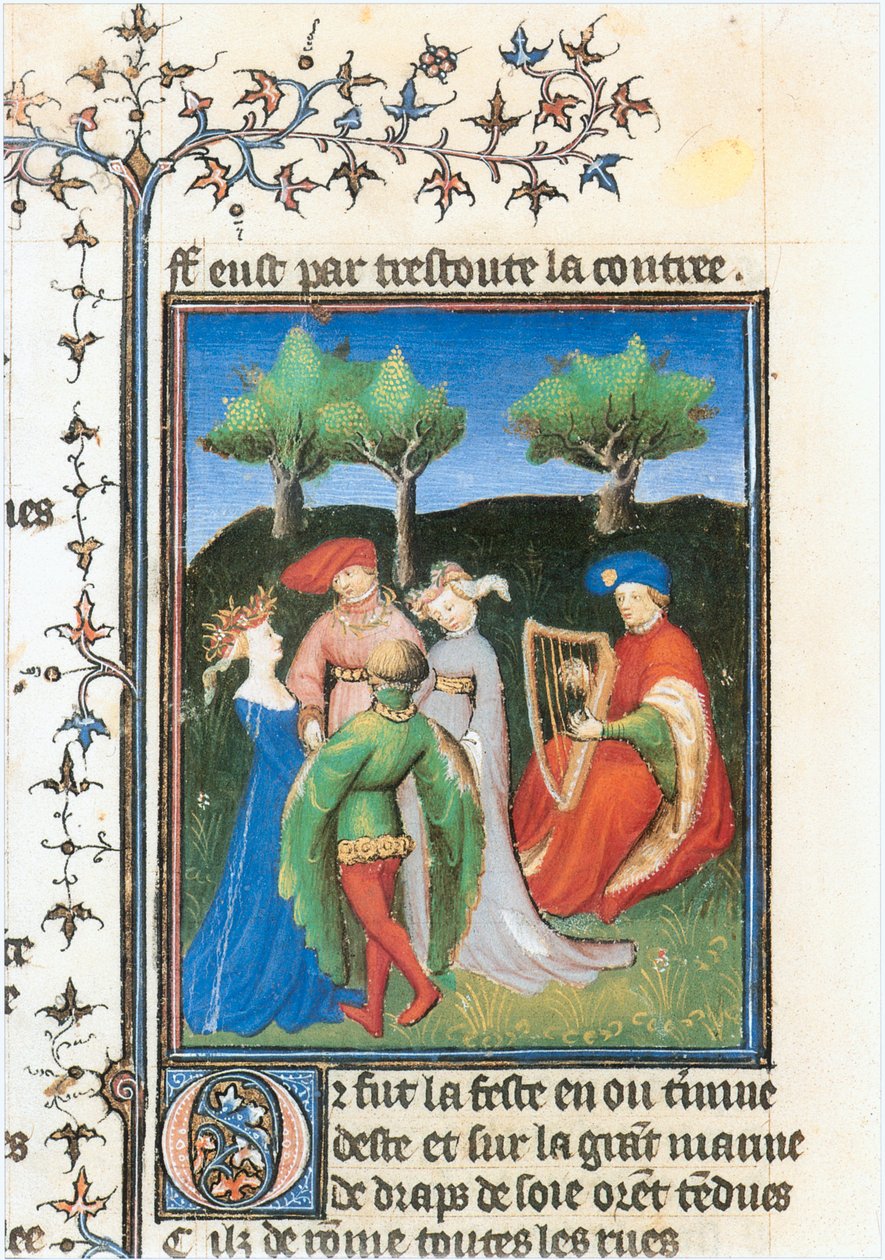 ff eust par trestoute la contree .
ues
Or fut la feste en ou t̃mine
deste et sur la grãt
de draps de soie orẽt tẽdues
C ilz de rõme toutes les rues